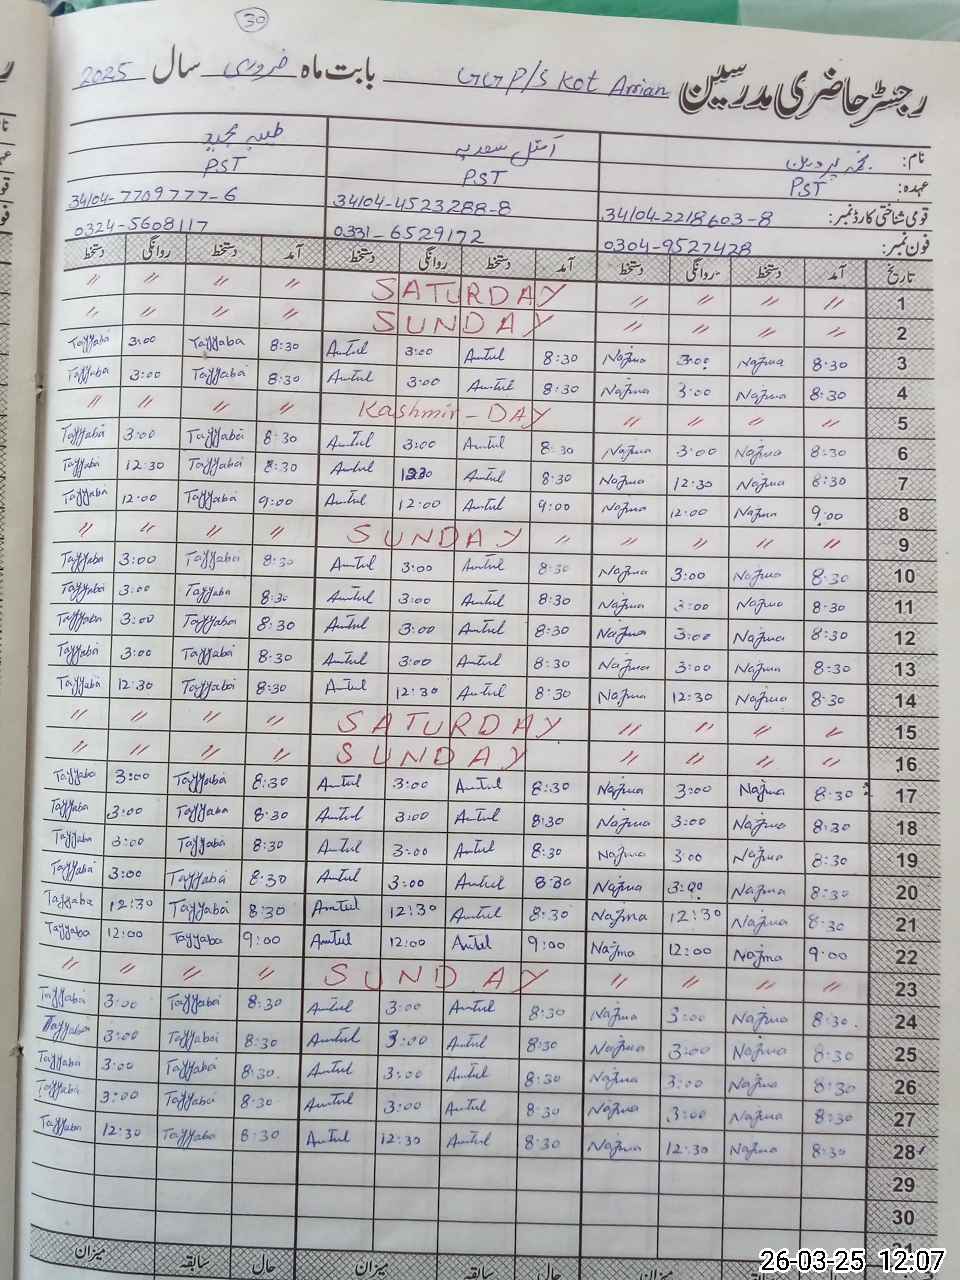 30
رجسٹر حاضری مدرسین GGP/S Kot Arrian بابت ماہ فروری سال 2025
نام: نجمہ پروین طیبہ مجید
عہدہ: PST PST PST
قومی شناختی کارڈ نمبر: 34104-2218603-8 34104-4523288-8 34104-7709777-6
فون نمبر: 0304-9527428 0331-6529172 0324-5608117
تاریخ آمد دستخط روانگی دستخط آمد دستخط روانگی دستخط آمد دستخط روانگی دستخط
〃 〃 〃 〃 SATURDAY 〃 〃 〃 〃 1
〃 〃 〃 〃 SUNDAY 〃 〃 〃 〃 2
Tayyaba 3:00 Tayyaba 8:30 Amtul 3:00 Amtul 8:30 Najma 3:00 Najma 8:30 3
Tayyaba 3:00 Tayyaba 8:30 Amtul 3:00 Amtul 8:30 Najma 3:00 Najma 8:30 4
〃 〃 〃 〃 Kashmir-DAY 〃 〃 〃 〃 5
Tayyaba 3:00 Tayyaba 8:30 Amtul 3:00 Amtul 8:30 Najma 3:00 Najma 8:30 6
Tayyaba 12:30 Tayyaba 8:30 Amtul 1230 Amtul 8:30 Najma 12:30 Najma 8:30 7
Tayyaba 12:00 Tayyaba 9:00 Amtul 12:00 Amtul 9:00 Najma 12:00 Najma 9:00 8
〃 〃 〃 〃 SUNDAY 〃 〃 〃 〃 〃 9
Tayyaba 3:00 Tayyaba 8:30 Amtul 3:00 Amtul 8:30 Najma 3:00 Najma 8:30 10
Tayyaba 3:00 Tayyaba 8:30 Amtul 3:00 Amtul 8:30 Najma 3:00 Najma 8:30 11
Tayyaba 3:00 Tayyaba 8:30 Amtul 3:00 Amtul 8:30 Najma 3:00 Najma 8:30 12
Tayyaba 3:00 Tayyaba 8:30 Amtul 3:00 Amtul 8:30 Najma 3:00 Najma 8:30 13
Tayyaba 12:30 Tayyaba 8:30 Amtul 12:30 Amtul 8:30 Najma 12:30 Najma 8:30 14
〃 〃 〃 〃 SATURDAY 〃 〃 〃 〃 15
〃 〃 〃 〃 SUNDAY 〃 〃 〃 〃 16
Tayyaba 3:00 Tayyaba 8:30 Amtul 3:00 Amtul 8:30 Najma 3:00 Najma 8:30 17
Tayyaba 3:00 Tayyaba 8:30 Amtul 3:00 Amtul 8:30 Najma 3:00 Najma 8:30 18
Tayyaba 3:00 Tayyaba 8:30 Amtul 3:00 Amtul 8:30 Najma 3:00 Najma 8:30 19
Tayyaba 3:00 Tayyaba 8:30 Amtul 3:00 Amtul 8:30 Najma 3:00 Najma 8:30 20
Tayyaba 12:30 Tayyaba 8:30 Amtul 12:30 Amtul 8:30 Najma 12:30 Najma 8:30 21
Tayyaba 12:00 Tayyaba 9:00 Amtul 12:00 Amtul 9:00 Najma 12:00 Najma 9:00 22
〃 〃 〃 〃 SUNDAY 〃 〃 〃 〃 23
Tayyaba 3:00 Tayyaba 8:30 Amtul 3:00 Amtul 8:30 Najma 3:00 Najma 8:30 24
Tayyaba 3:00 Tayyaba 8:30 Amtul 3:00 Amtul 8:30 Najma 3:00 Najma 8:30 25
Tayyaba 3:00 Tayyaba 8:30 Amtul 3:00 Amtul 8:30 Najma 3:00 Najma 8:30 26
Tayyaba 3:00 Tayyaba 8:30 Amtul 3:00 Amtul 8:30 Najma 3:00 Najma 8:30 27
Tayyaba 12:30 Tayyaba 8:30 Amtul 12:30 Amtul 8:30 Najma 12:30 Najma 8:30 28
29
30
میزان سابقہ حال میزان سابقہ حال
26-03-25 12:07